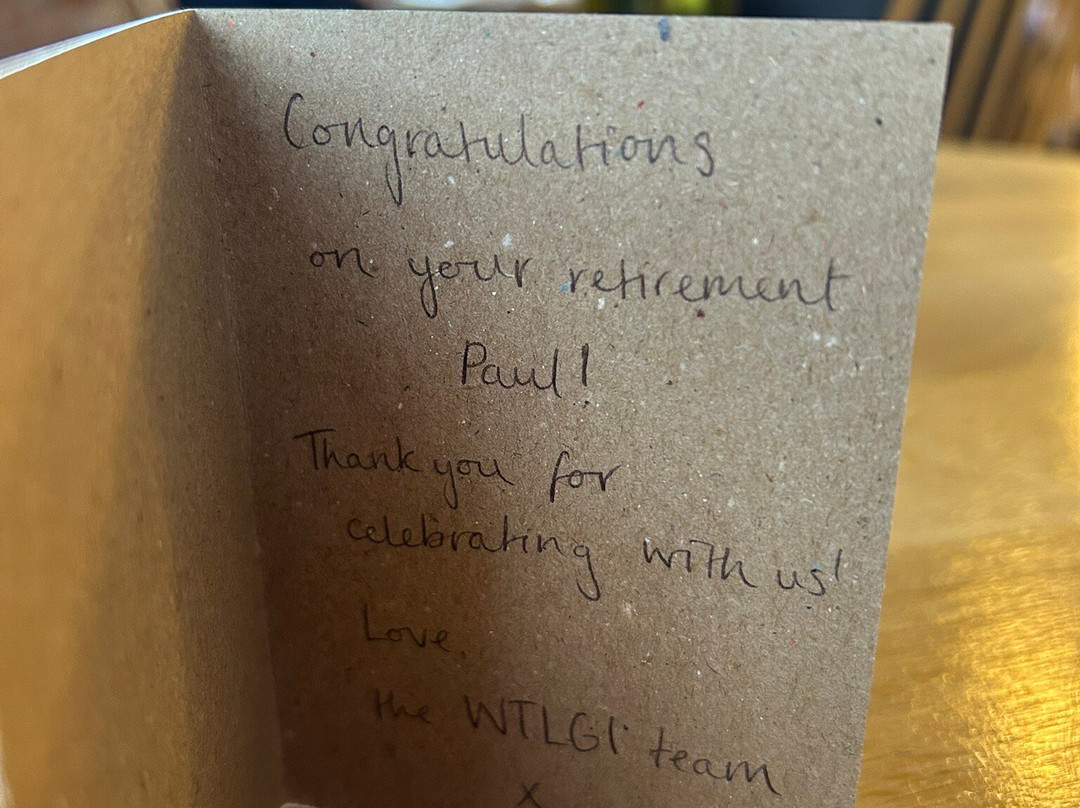 Congratulations
on your retirement
Paul!
Thank you for
celebrating with us!
Love,
the WTLGI team
x